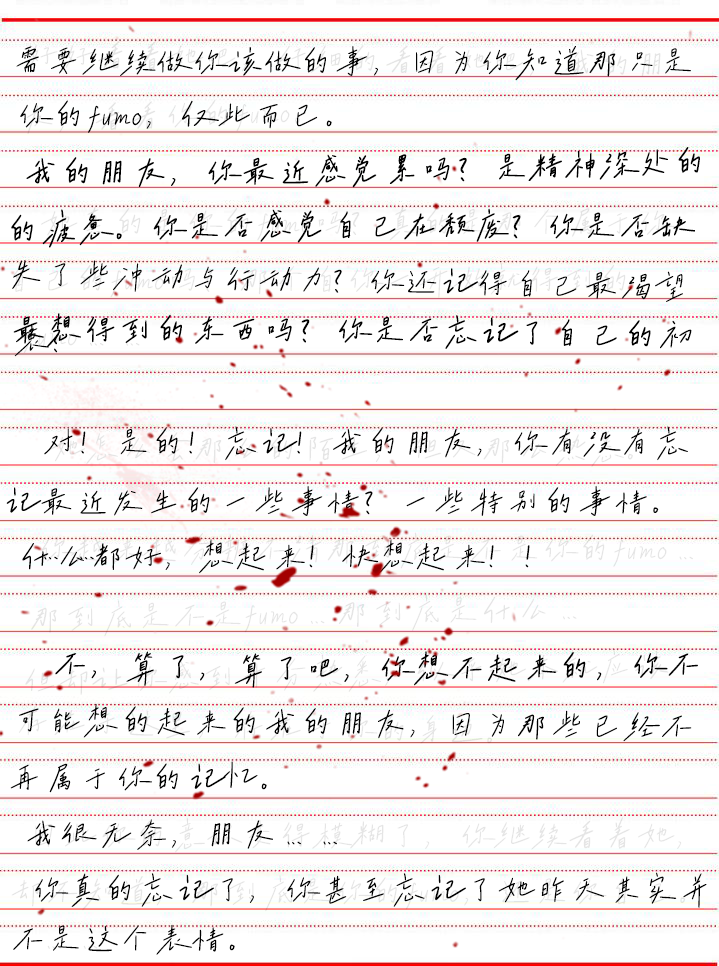 需要继续做你该做的事，因为你知道那只是
你的fumo，仅此而已。
我的朋友，你最近感觉累吗？是精神深处的
的疲惫。你是否感觉自己在颓废？你是否缺
失了些冲动与行动力？你还记得自己最渴望
最想得到的东西吗？你是否忘记了自己的初
对！是的！忘记！我的朋友，你有没有忘
记最近发生的一些事情？一些特别的事情。
什么都好，想起来！快想起来！！
那到底是不是fumo…那到底是什么…
不，算了，算了吧，你想不起来的，你不
可能想的起来的我的朋友，因为那些已经不
再属于你的记忆。
我很无奈，朋友……
你真的忘记了，你甚至忘记了她昨天其实并
不是这个表情。